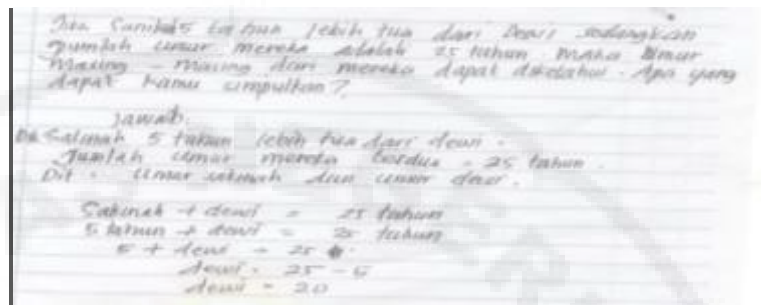 Jika Sakinah 5 tahun lebih tua dari Dewi sedangkan
jumlah umur mereka adalah 25 tahun maka umur
masing - masing dari mereka dapat diketahui. Apa yang
dapat kamu simpulkan?
Jawab:
Salinah 5 tahun lebih tua dari dewi.
Jumlah umur mereka berdua = 25 tahun.
Dit : umur sakinah dan umur dewi.
Sakinah + dewi = 25 tahun
5 tahun + dewi = 25 tahun
5 + dewi = 25
dewi = 25 - 5
dewi = 20